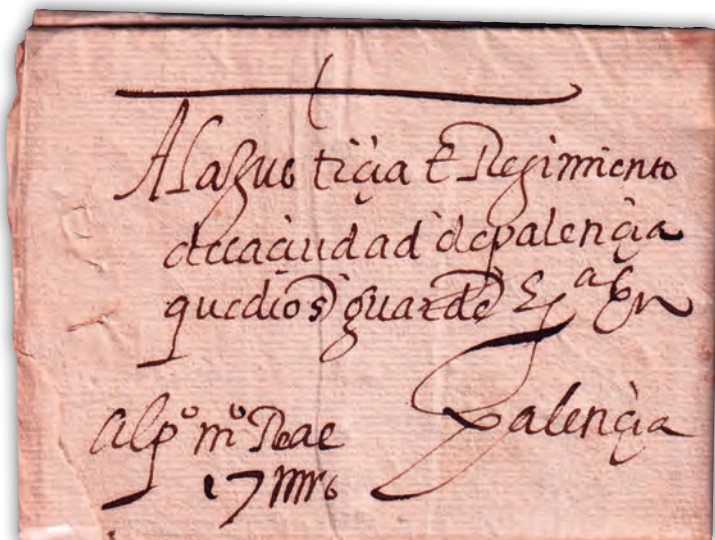 A la Jus ticia E Regimiento
de la ciudad de palencia
que dios guarde Etª En
palencia
al pº mº Real
17 mrs